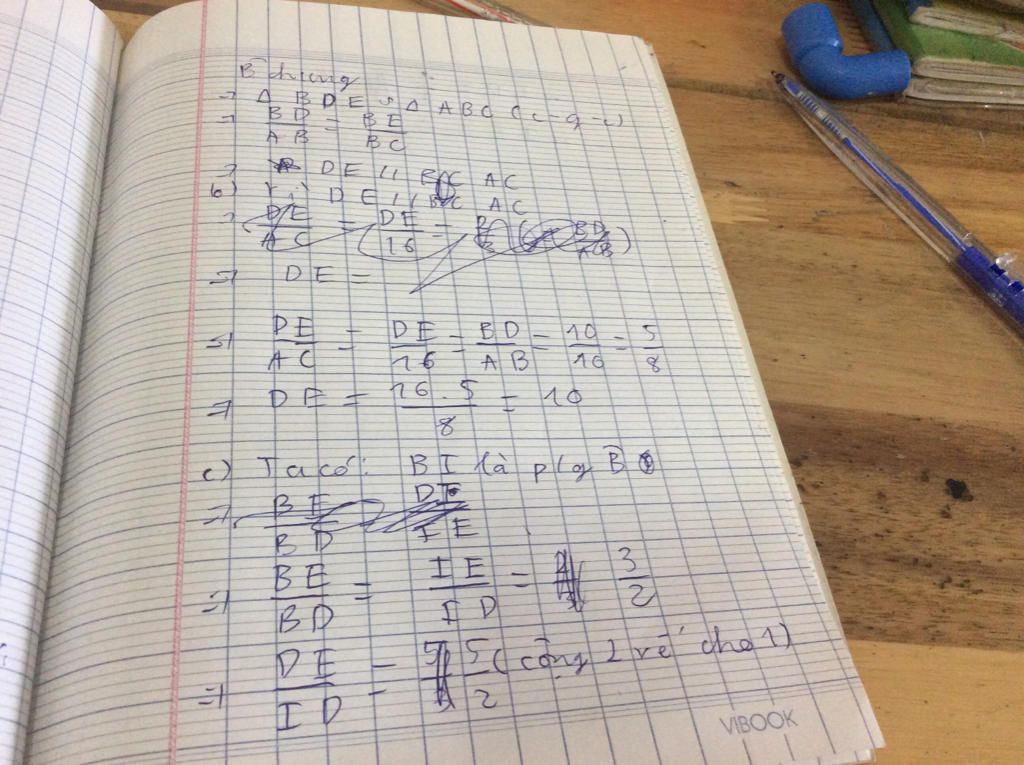 B chung
=> Δ BDE ∽ Δ ABC (c-g-c)
=> BD/AB = BE/BC
=> DE // AC
b) Vì DE // AC
=> DE/AC = DE/16 =
=> DE =
=> DE/AC = DE/16 = BD/AB = 10/16 = 5/8
=> DE = 16.5/8 = 10
c) Ta có: BI là p/g B
=> BE/BD DE/IE
=> BE/BD = IE/ID = 3/2
=> DE/ID = 5/2 (cộng 2 vế cho 1)
VIBOOK